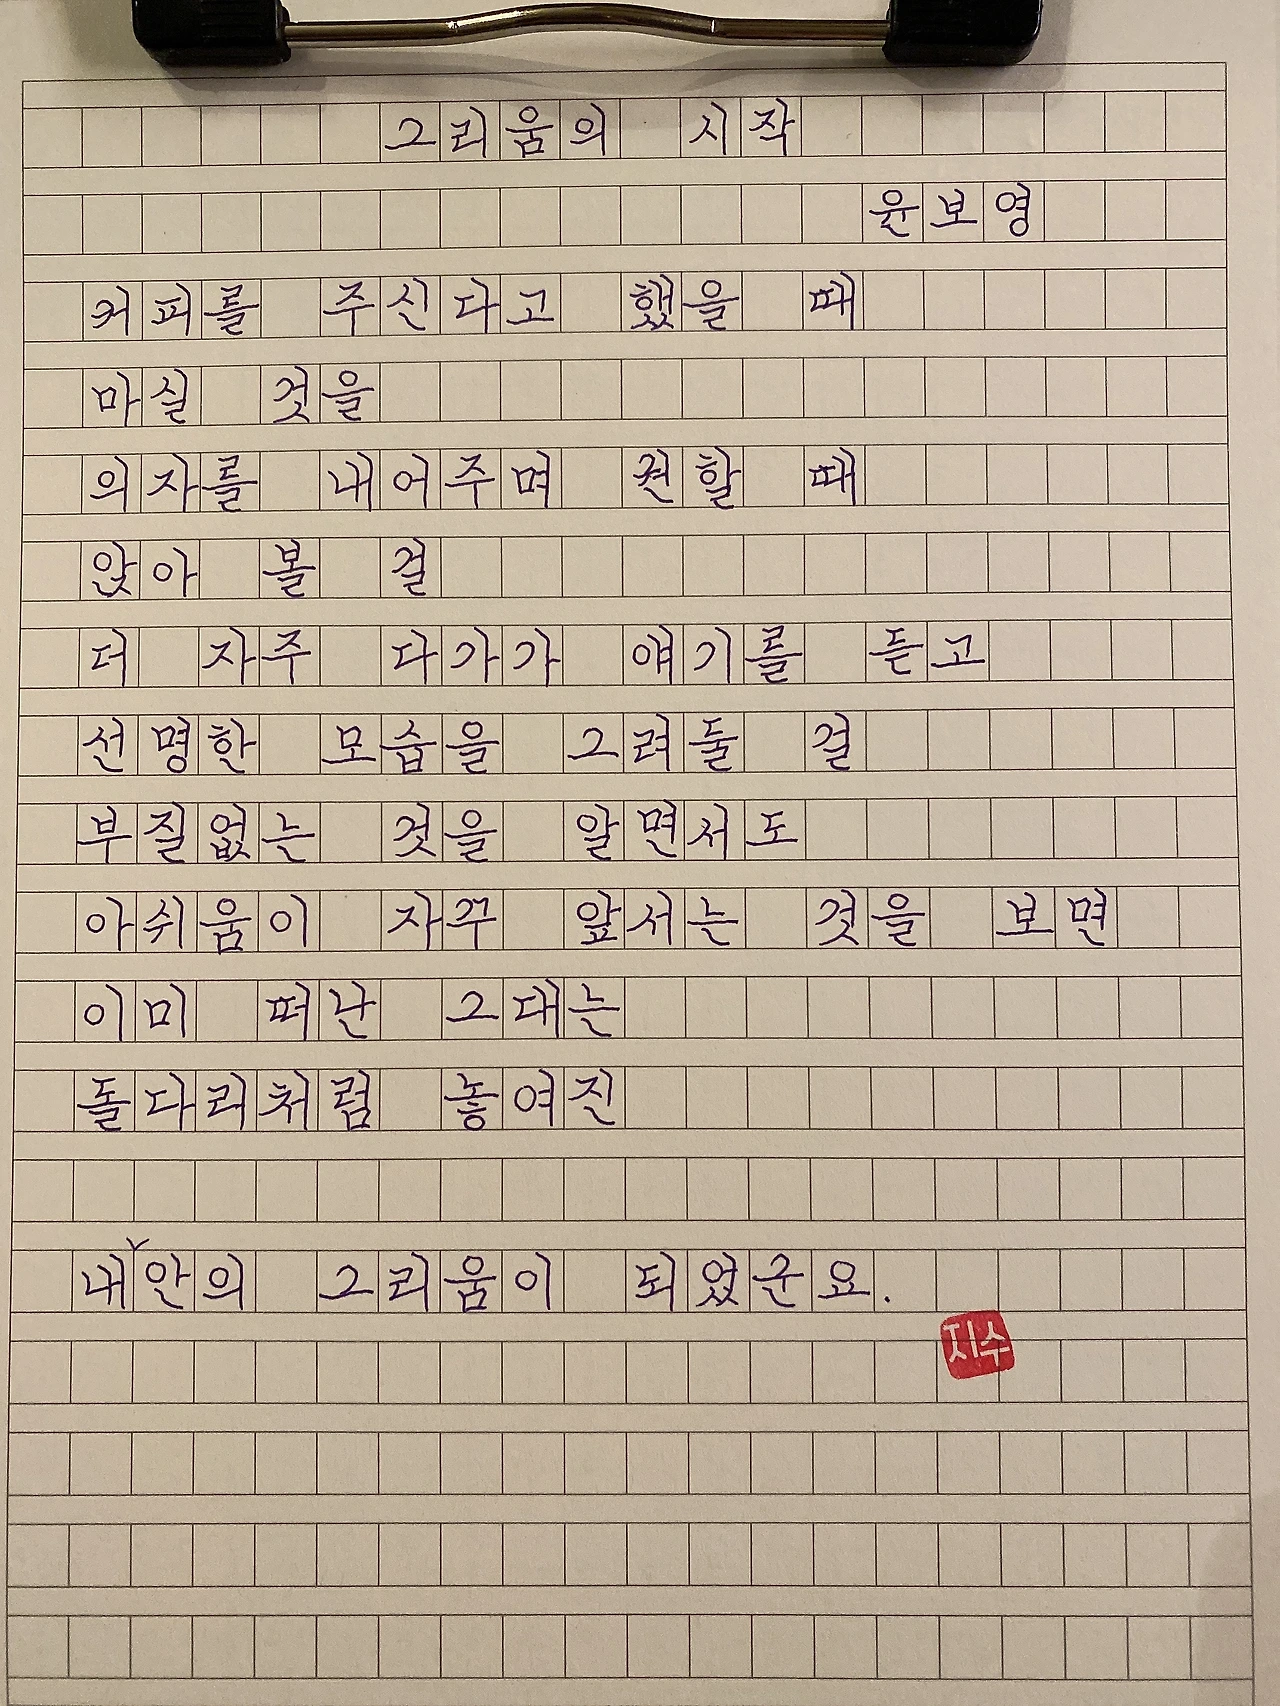 그리움의 시작
윤보영
커피를 주신다고 했을 때
마실 것을
의자를 내어주며 권할 때
앉아 볼 걸
더 자주 다가가 얘기를 듣고
선명한 모습을 그려둘 걸
부질없는 것을 알면서도
아쉬움이 자꾸 앞서는 것을 보면
이미 떠난 그대는
돌다리처럼 놓여진
내˅안의 그리움이 되었군요.
지수